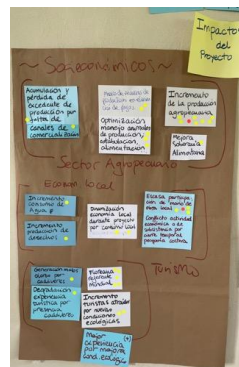 Impactos
del
Proyecto
~ Socioeconómicos ~
Acumulación y
pérdida de
excedente de
producción por
falta de
canales de
comercialización
Optimización
manejo animales
de producción,
estabulación,
alimentación
Incremento
de la producción
agropecuaria
Mejora
Soberanía
Alimentaria
Sector Agropecuario
Econom. local
Incremento
consumo de
Agua
Incremento
producción de
desechos
Dinamización
economía local
durante proyecto
por comunidad
Escasa participa-
ción de mano de
obra local
Conflicto actividad
económica o de
subsistencia por
corte temporal
pequeña cultiva
Turismo
Generación malos
olores por
cadáveres
Degradación
experiencia
turística por
presencia
cadáveres
Pionera
referente
Mundial
Incremento
turistas atraídos
por nuevas
condiciones
ecológicas
Mejor
experiencia
por mejores
cond. ecológicas